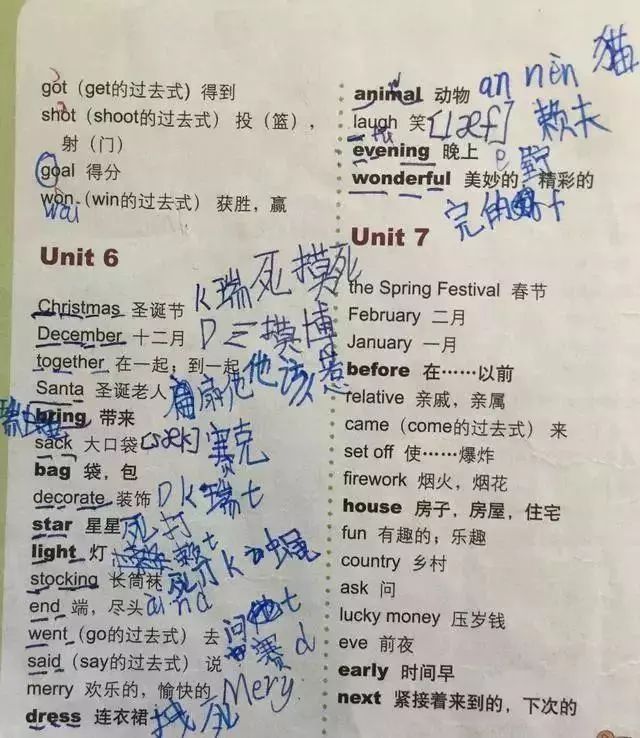 got (get的过去式) 得到
shot (shoot的过去式) 投 (篮),
射 (门)
goal 得分
won (win的过去式) 获胜, 赢
wai
Unit 6
Christmas 圣诞节 k瑞死摸死
December 十二月 D三摸博
together 在一起; 到一起
Santa 圣诞老人 扇他
bring 带来
sack 大口袋 [sæk] 赛克
bag 袋, 包
decorate 装饰 Dk瑞t
star 星星 死打
light 灯 赖t
stocking 长筒袜
end 端, 尽头 aind
went (go的过去式) 去
said (say的过去式) 说 赛d
merry 欢乐的, 愉快的 Mery
dress 连衣裙
animal 动物 an nèn 猫
laugh 笑 [læf] 赖夫
evening 晚上 e
wonderful 美妙的, 精彩的
Unit 7
the Spring Festival 春节
February 二月
January 一月
before 在……以前
relative 亲戚, 亲属
came (come的过去式) 来
set off 使……爆炸
firework 烟火, 烟花
house 房子, 房屋, 住宅
fun 有趣的; 乐趣
country 乡村
ask 问
lucky money 压岁钱
eve 前夜
early 时间早
next 紧接着来到的, 下次的